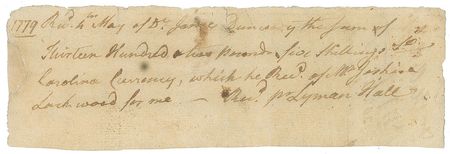 1779 Rec.d 4th May of Dr. James Dunwody the sum of
Thirteen Hundred & two Pounds six Shillings So.
Carolina Currency, which he Rec.d of Mr. Joshua
Lockwood for me. — Rec.d pr Lyman Hall